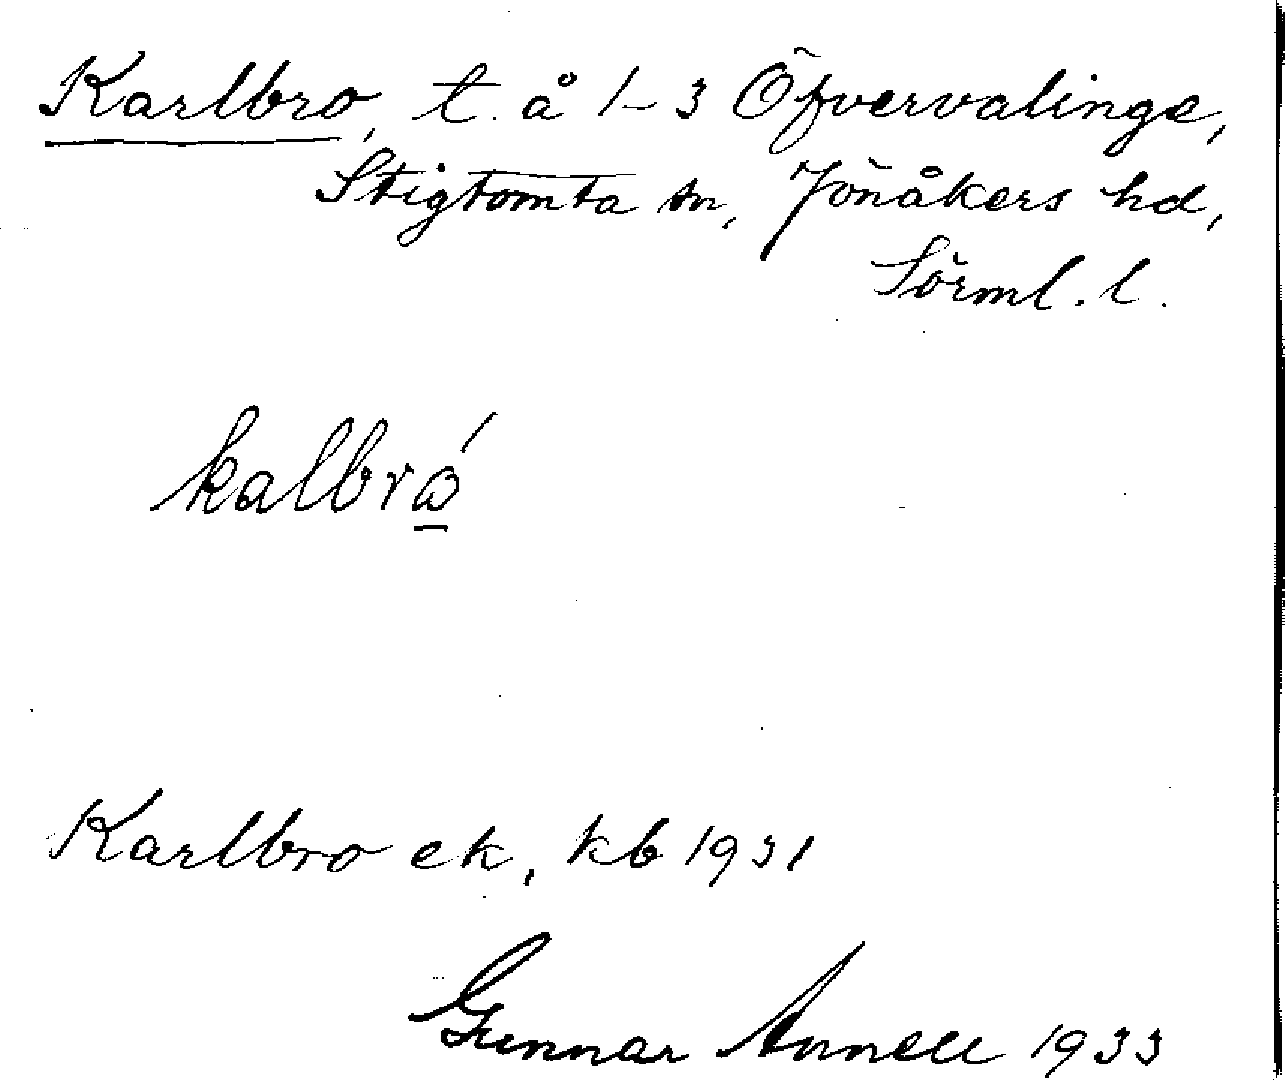 Karlbro, t. å 1-3 Öfvervalinge,
Stigtomta sn, Jönåkers hd,
Sörml. l.
kalbró
Karlbro ek, kb 1931
Gunnar Annell 1933